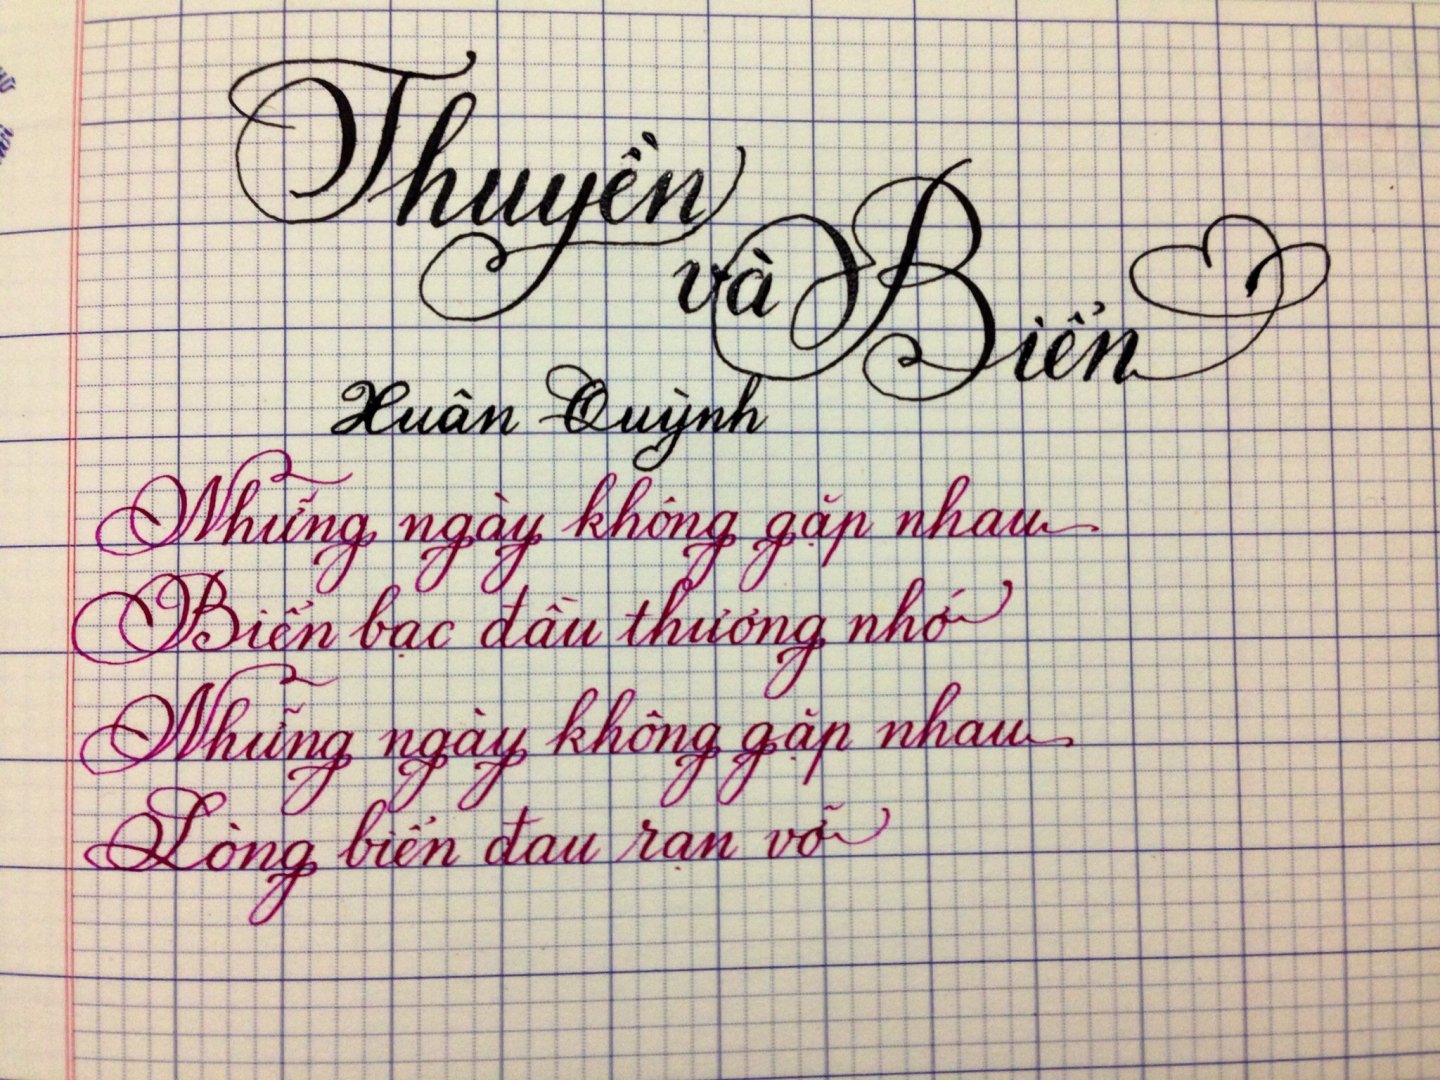 Thuyền
và Biển
Xuân Quỳnh
Những ngày không gặp nhau
Biển bạc đầu thương nhớ
Những ngày không gặp nhau
Lòng biển đau rạn vỡ